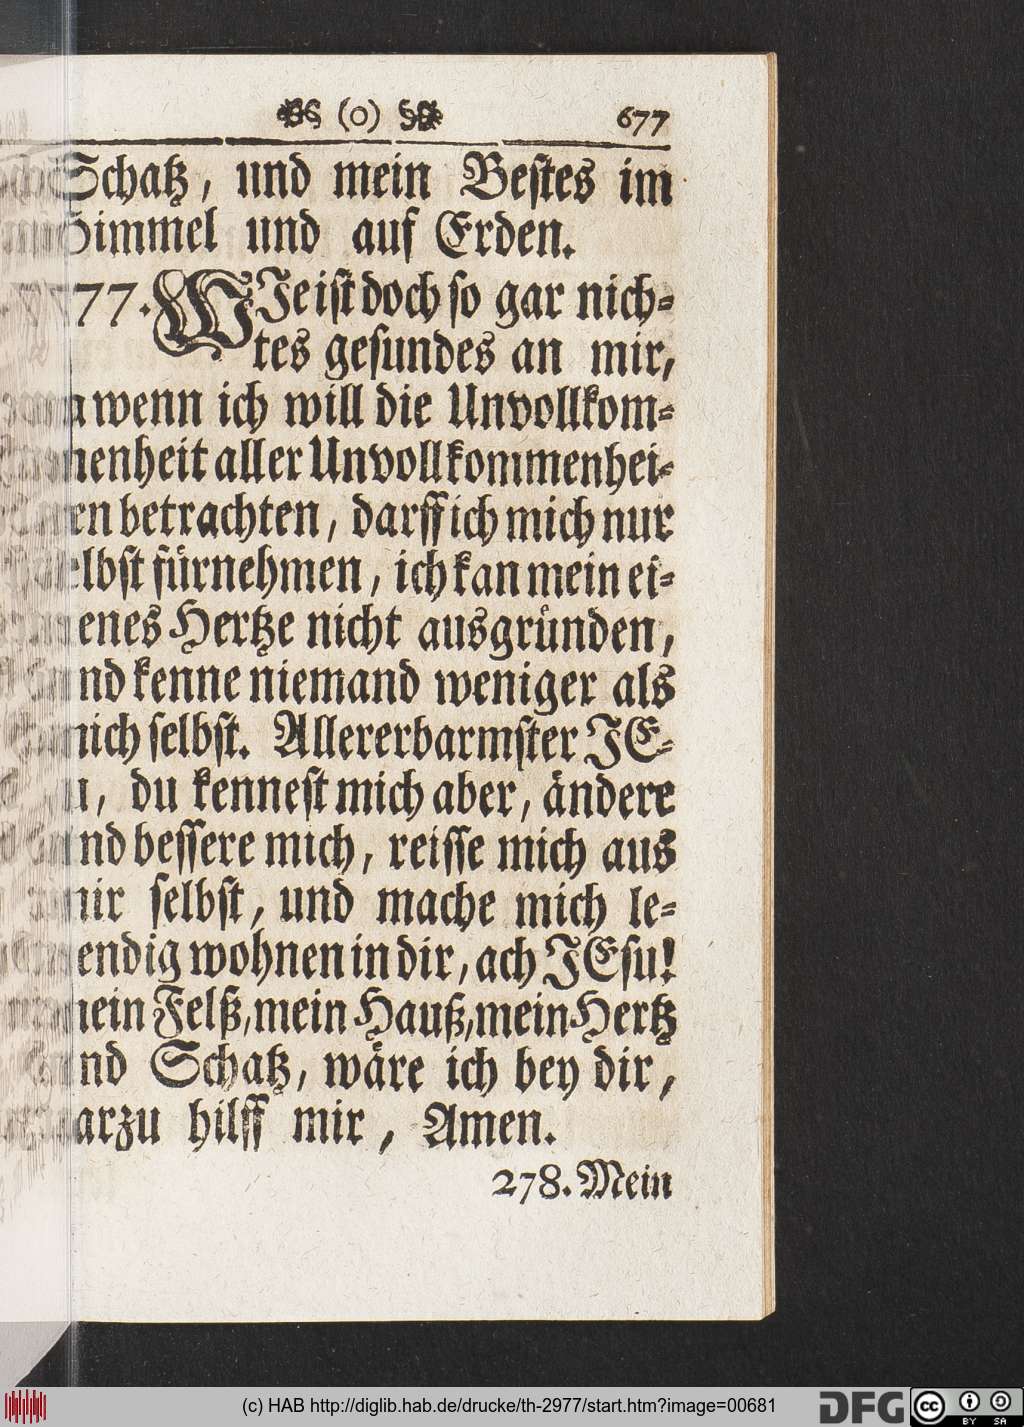 (o) 677
Schatz, und mein Bestes im
Himmel und auf Erden.
277. WIe ist doch so gar nich-
tes gesundes an mir,
wenn ich will die Unvollkom-
menheit aller Unvollkommenhei-
ten betrachten, darff ich mich nur
selbst fürnehmen, ich kan mein ei-
genes Hertze nicht ausgründen,
und kenne niemand weniger als
mich selbst. Allererbarmster JE-
su, du kennest mich aber, ändere
und bessere mich, reisse mich aus
mir selbst, und mache mich le-
bendig wohnen in dir, ach JEsu!
mein Felß, mein Hauß, mein Hertz
und Schatz, wäre ich bey dir,
darzu hilff mir, Amen.
278. Mein
(c) HAB http://diglib.hab.de/drucke/th-2977/start.htm?image=00681
DFG
cc BY SA